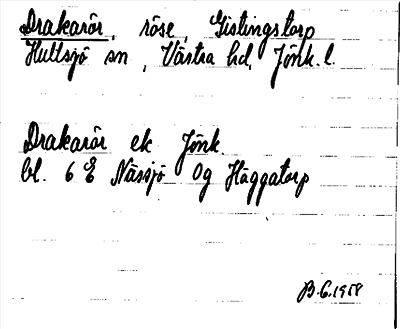 Drakarör, röse, Gistingstorp
Hultsjö sn, Västra hd, Jönk. l.
Drakarör ek Jönk.
bl. 6 E Nässjö Og Häggatorp
B.G. 1958